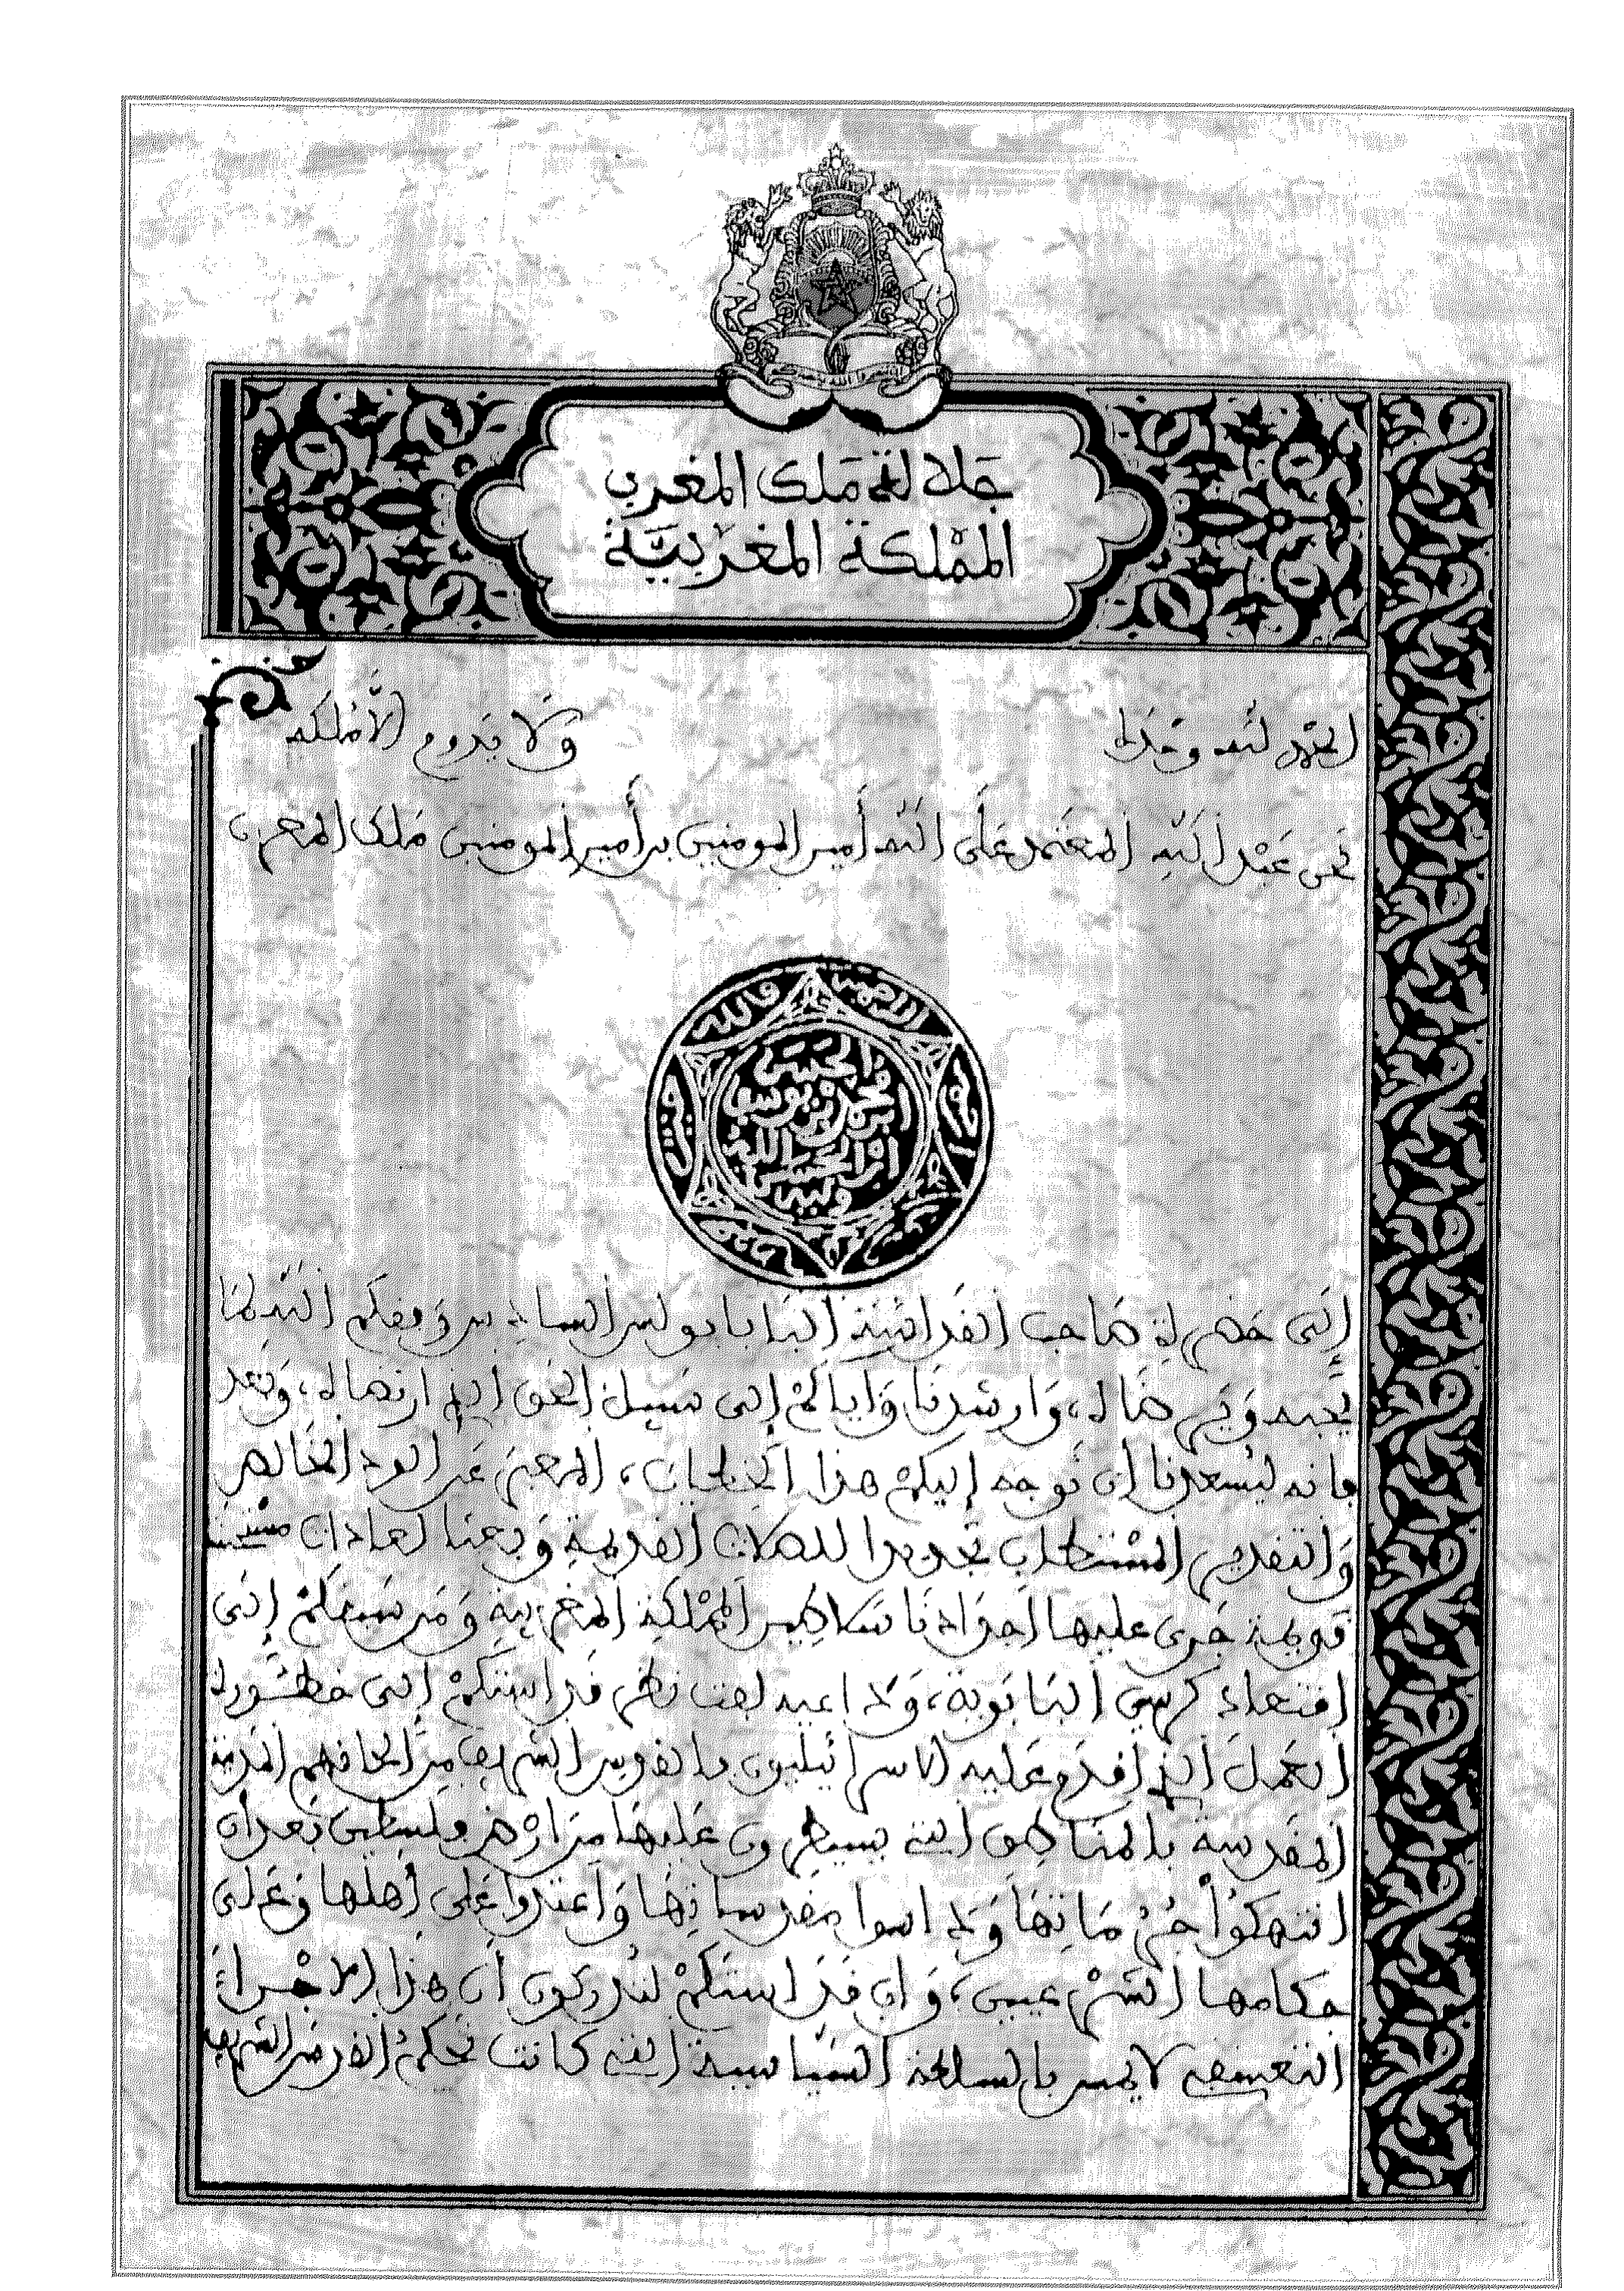 جلالة ملك المغرب
المملكة المغربية
الحمد لله وحده
ولا يدوم إلا ملكه
نحن عبد الله المعتمد على الله أمير المومنين بن أمير المومنين ملك المغرب
الحسن
بن محمد بن يوسف
الله وليه
إلى حضرة صاحب القداسة البابا بولس السادس وفقكم الله لما
يحبه ويرضاه، وارشدنا وإياكم إلى سبيل الحق الذي ارتضاه، وبعد
فانه ليسعدنا أن نوجه إليكم هذا الخطاب، المعبر عن الود الخالص
والتقدير المستطاب تجديدا للصلات القديمة وبعثا لعادات مستحبة
قويمة جرى عليها أجدادنا سلاطين المملكة المغربية ومن سبقكم إلى
اقتعاد كرسي البابوية، ولا اعيد لفت نظر قداستكم إلى خطورة
العمل الذي أقدم عليه الاسرائيليون بالقدس الشريف من إلحاقهم المدينة
المقدسة بالمناطق التي يسيطرون عليها من أرض فلسطين بعد أن
انتهكوا حرماتها وداسوا مقدساتها واعتدوا على أهلها وعلى
حكامها الشرعيين، وإن قداستكم لتدركون أن هذا الاجراء
التعسفي لا يمس بالسلطة السياسية التي كانت تحكم القدس الشريف